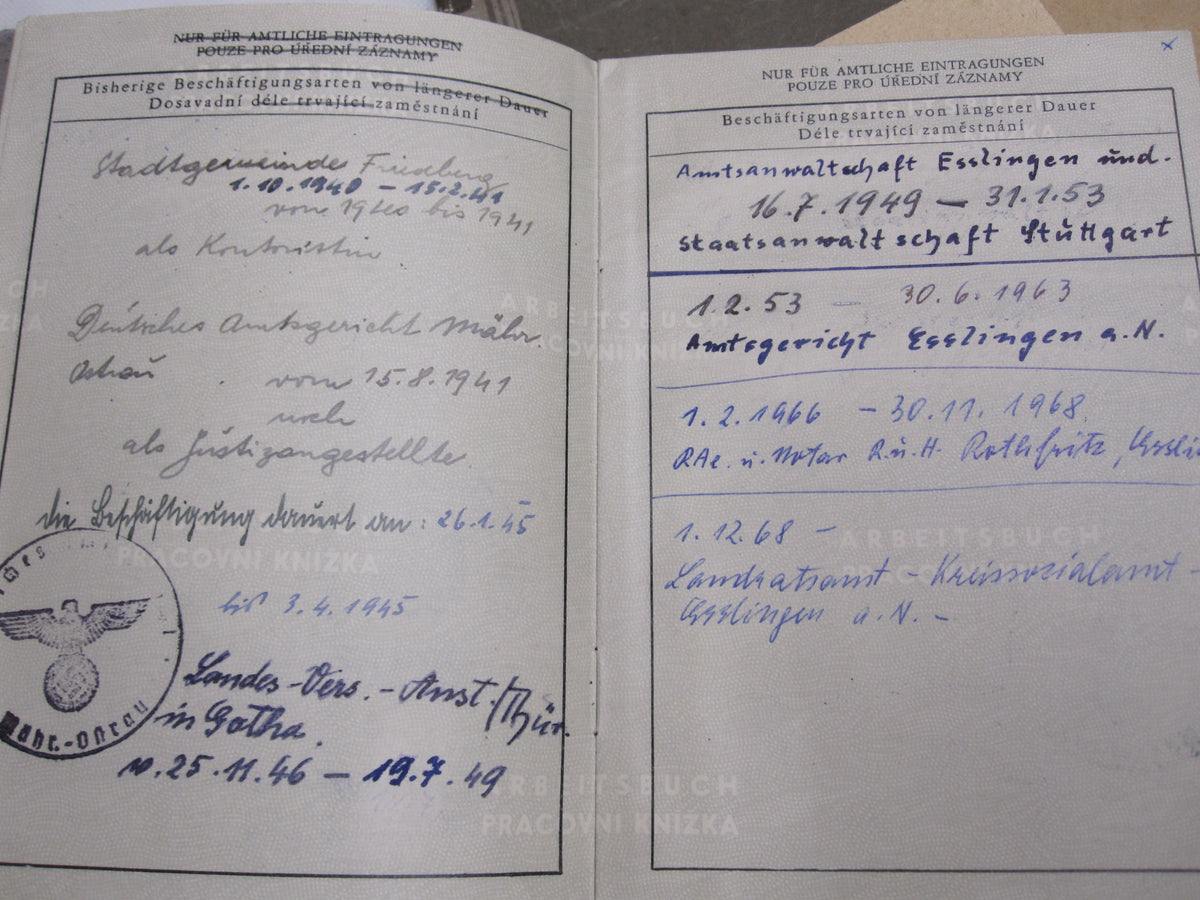 NUR FÜR AMTLICHE EINTRAGUNGEN
POUZE PRO ÚŘEDNÍ ZÁZNAMY
Bisherige Beschäftigungsarten von längerer Dauer
Dosavadní déle trvající zaměstnání
Stadtgemeinde Friedberg
1.10.1940 - 15.2.41
von 1940 bis 1941
als Kontoristin
Deutsches Amtsgericht Mähr.
Ostrau vom 15.8.1941
als Justizangestellte.
die Beschäftigung dauert an: 26.1.45
bis 3.4.1945
Mähr.-Ostrau
Landes-Vers.-Anst./Thür.
in Gotha.
v. 25.11.46 - 19.7.49
ARBEITSBUCH
PRACOVNÍ KNÍŽKA
NUR FÜR AMTLICHE EINTRAGUNGEN
POUZE PRO ÚŘEDNÍ ZÁZNAMY
Beschäftigungsarten von längerer Dauer
Déle trvající zaměstnání
Amtsanwaltschaft Esslingen und.
16.7.1949 - 31.1.53
Staatsanwaltschaft Stuttgart
1.2.53 - 30.6.1963
Amtsgericht Esslingen a.N.
1.2.1966 - 30.11.1968
RAe. u. Notar R.u.H. Rothfritz,
1.12.68 -
Landratsamt - Kreissozialamt -
Esslingen a.N. -
ARBEITSBUCH